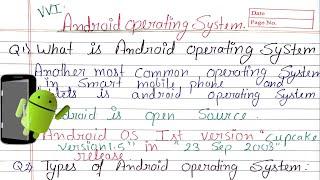 VVI:
Android Operating System.
Date
Page No.
Q1) What is Android operating System
Another most common operating System
in Smart mobile phone and
tablets is android operating System
Android is open Source.
Android OS Ist version "Cupcake
version1.5" in "23 Sep 2008"
release.
Q2) Types of Android Operating System:-